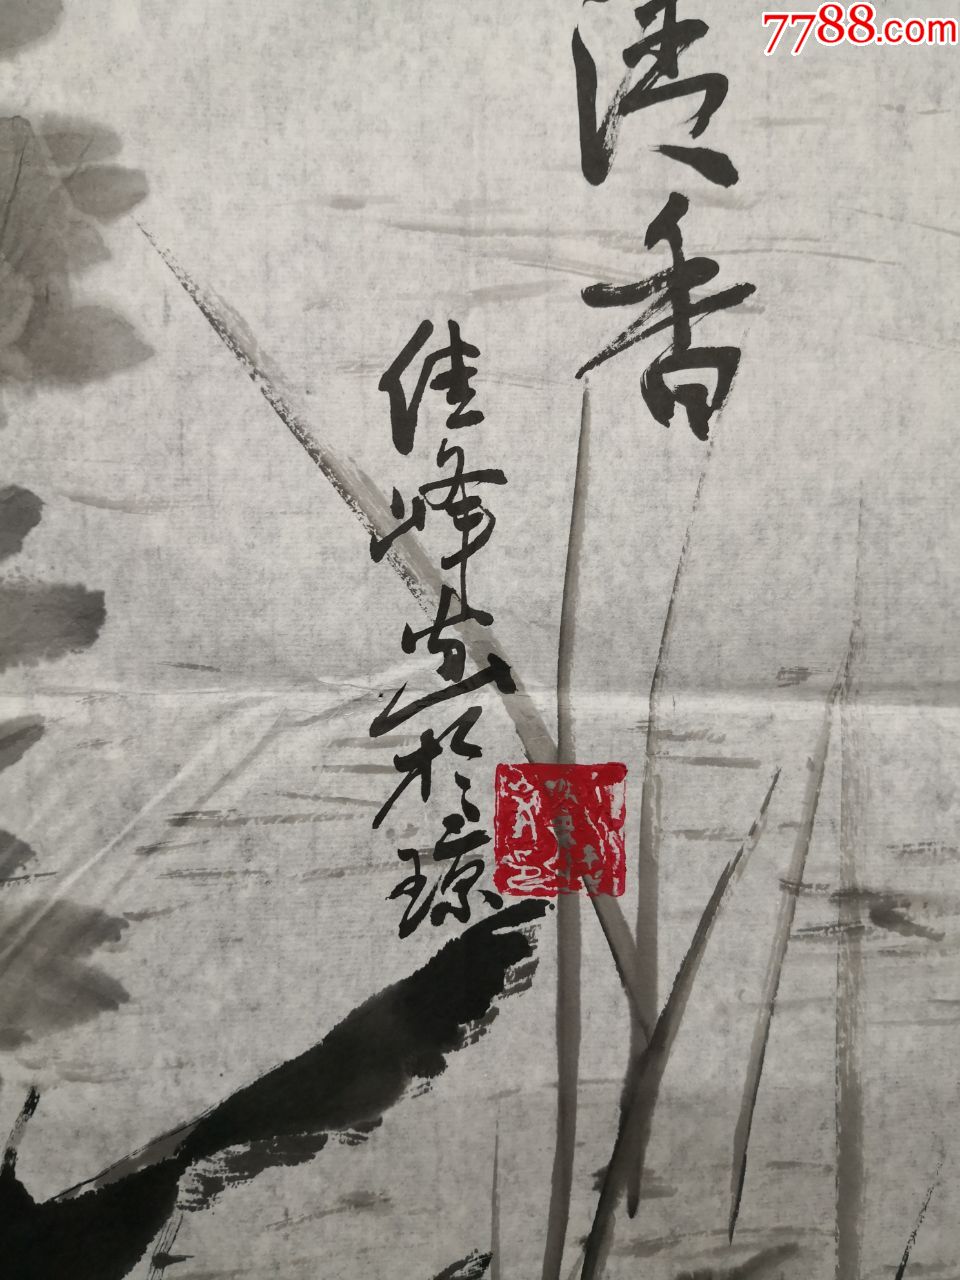 7788.com
清香
佳峰画於琼